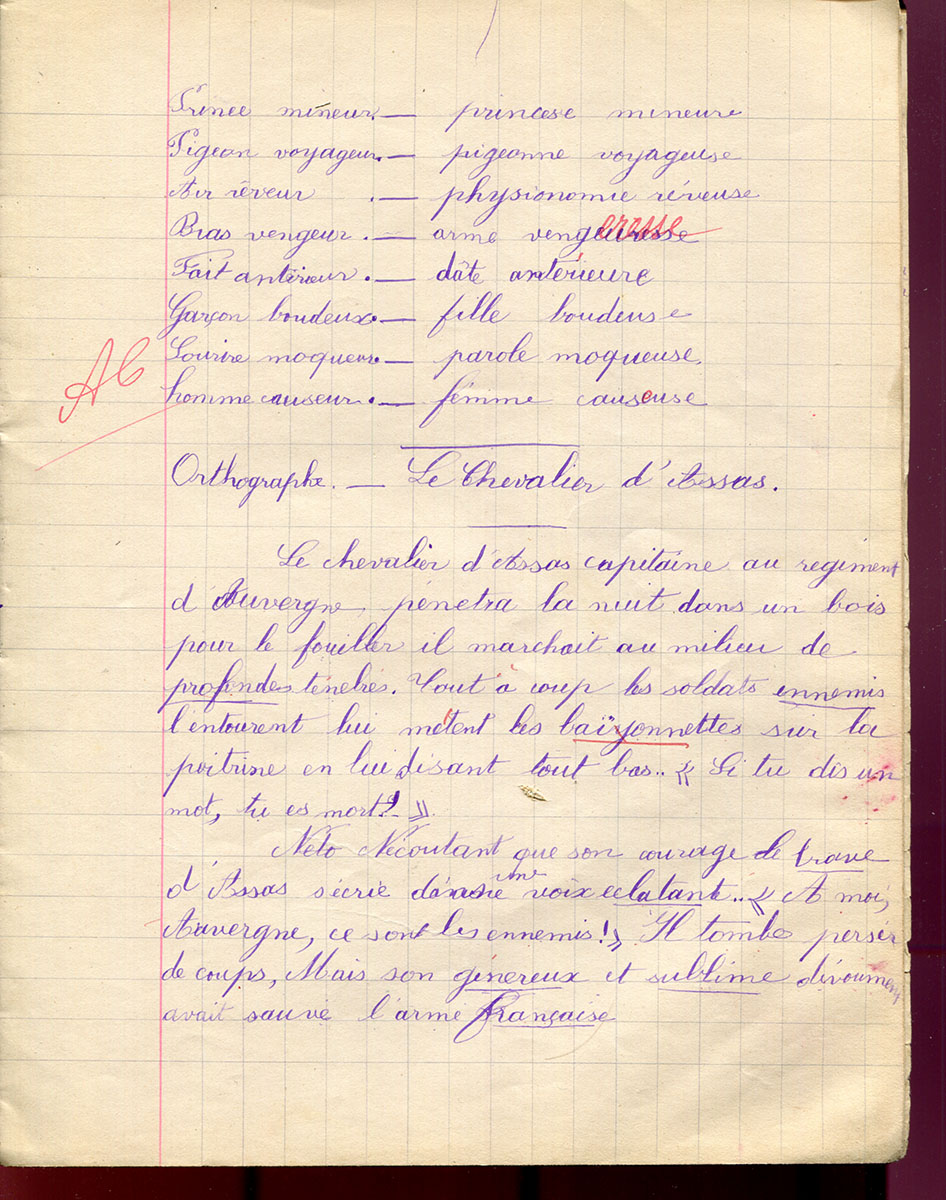 Prince mineur. — princesse mineure
Pigeon voyageur. — pigeonne voyageuse
Air rêveur . — physionomie rêveuse
Bras vengeur . — arme vengeresse
Fait antérieur . — dâte antérieure
Garçon boudeux. — fille boudeuse
Sourire moqueur. — parole moqueuse.
homme causeur . — fémme causeuse
AB
Orthographe. — Le Chevalier d'Assas.
Le chevalier d'Assas capitaine au regiment
d'Auvergne, pénetra la nuit dans un bois
pour le fouiller il marchait au milieu de
profondes ténebres. Tout à coup les soldats ennemis
l'entourent lui métent les baïyonnettes sur la
poitrine en lui disant tout bas.. « Si tu dis un
mot, tu es mort! »
Nécoutant que son courage de brave
d'Assas sécrie d'une voix eclatant.. « A moi,
Auvergne, ce sont les ennemis! » Il tombe persér
de coups, Mais son génereux et sublime dévoument
avait sauvé l'arme française